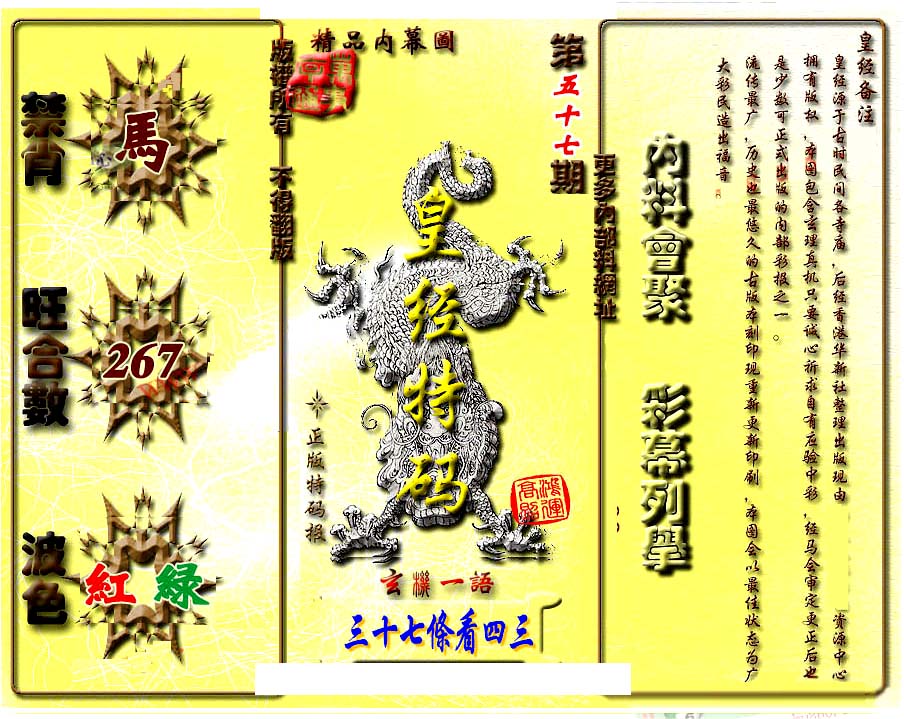 精品内幕圖
第五十七期
版權所有 不得翻版
更多内部料網址
禁肖
馬
旺合數
267
波色
紅 綠
皇经特码
正版特码报
鴻運高照
玄機一語
三十七條看四三
内料會聚
彩幕列舉
皇经备注
皇经源于古时民间各寺庙，后经香港华新社整理出版现由 资源中心
拥有版权，本图包含玄理真机只要诚心祈求自有应验中彩，经马会审定更正后也
是少数可正式出版的内部彩报之一。
流传最广，历史也最悠久的古版本刻印现重新更新印刷，本图会以最佳状态为广
大彩民造出福音